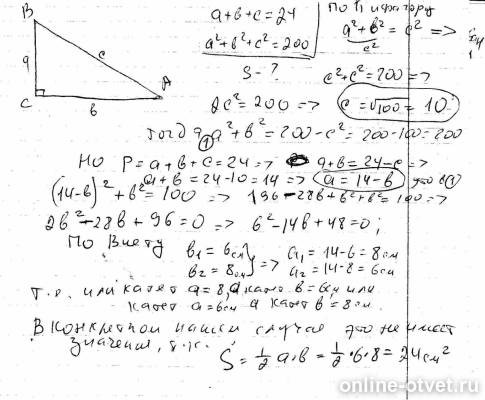 B
a
c
C
b
A
a+b+c=24
a²+b²+c²=200
S-?
По т. Пифагору
a²+b²=c² =>
c²
c²+c²=200 =>
2c²=200 => c=√100=10
тогда ① a²+b²=200-c²=200-100=200
Но P=a+b+c=24 => a+b=24-c =>
a+b=24-10=14 => a=14-b это в(1)
(14-b)²+b²=100 => 196-28b+b²+b²=100 =>
2b²-28b+96=0 => b²-14b+48=0;
По Виету
b₁=6см
b₂=8см
=> a₁=14-6=8см
a₂=14-8=6см
т.е. или катет a=8, а катет b=6см или
катет a=6см а катет b=8см.
В конкретном нашем случае это не имеет
значения, т.к.
S=½a·b=½·6·8=24см²
online-otvet.ru